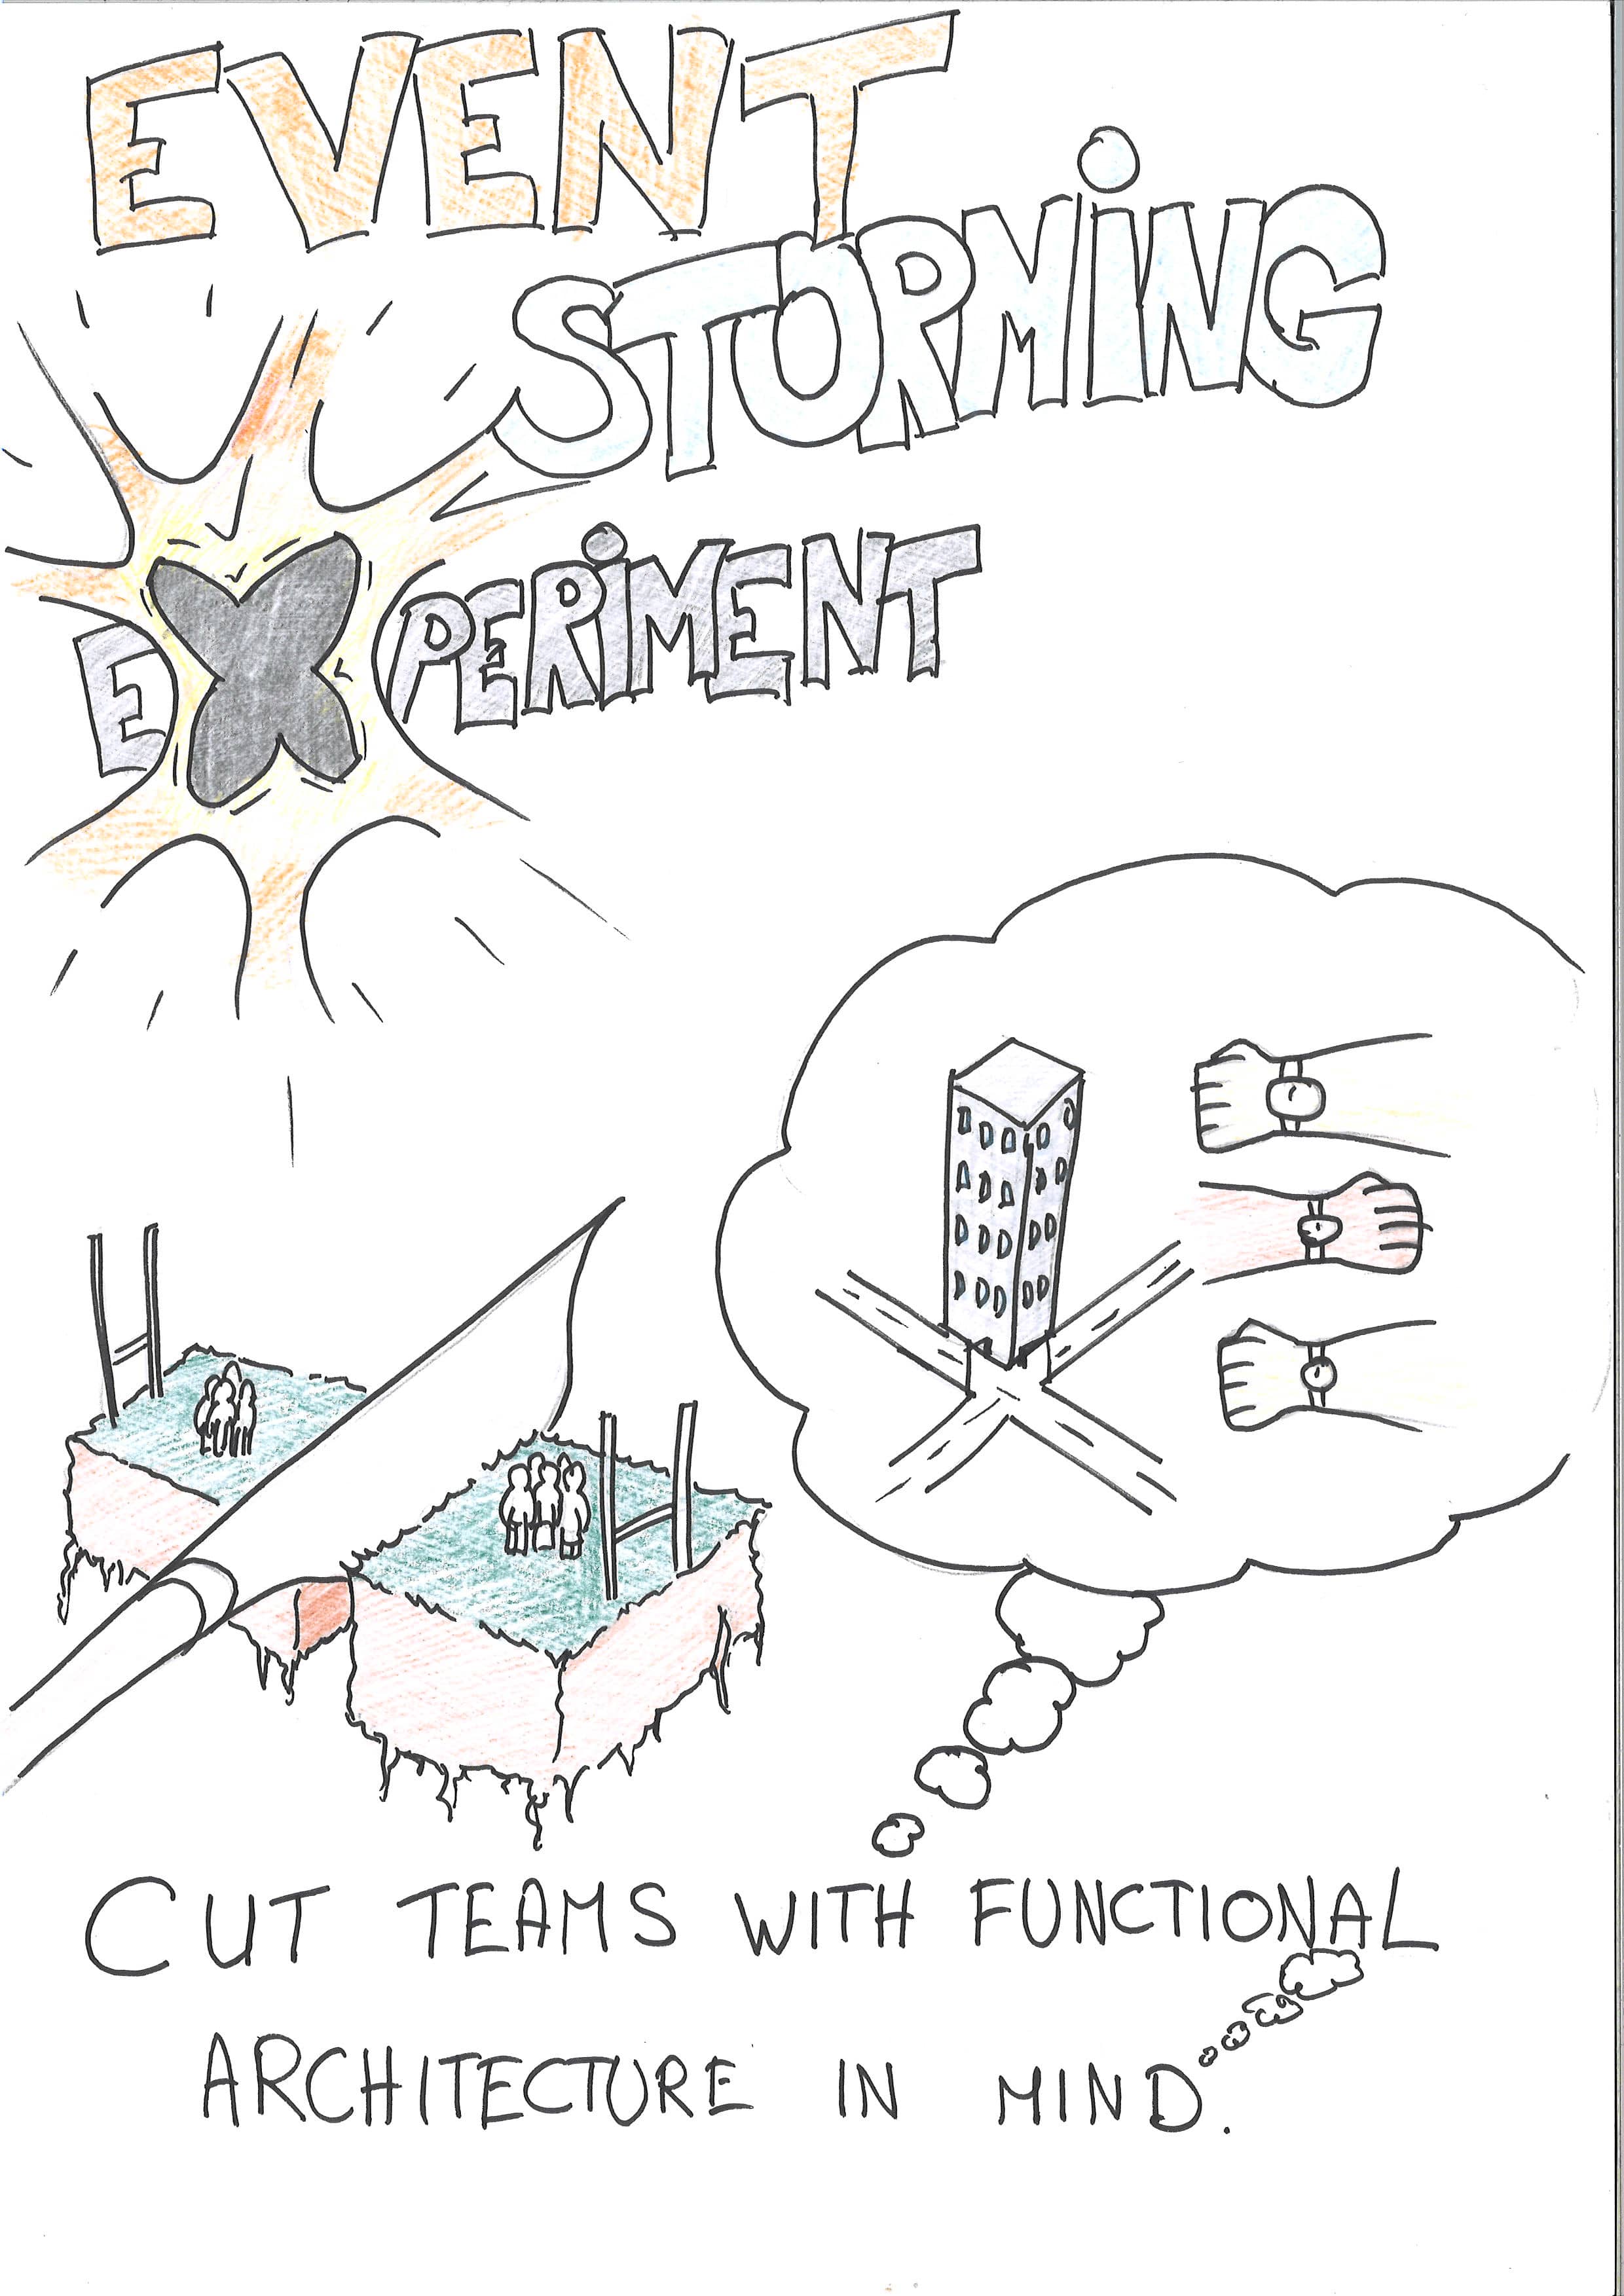 EVENT
STORMiNG
EXPERiMENT
CUT TEAMS WITH FUNCTIONAL
ARCHITECTURE IN MIND.